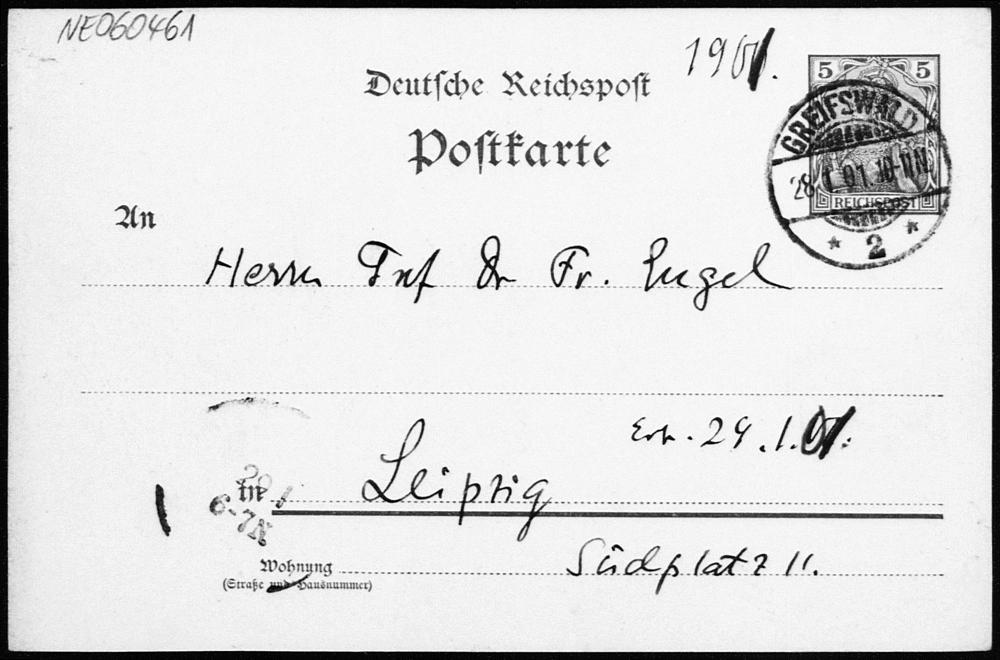 NE060461
1901.
Deutsche Reichspost
Postkarte
5 5
REICHSPOST
GREIFSWALD
28 1 01. 10-11N.
* 2 *
An
Herrn Prof Dr Fr. Engel
Erh. 29.1.01.
in Leipzig
6-7N
Wohnung Südplatz 11.
(Straße und Hausnummer)